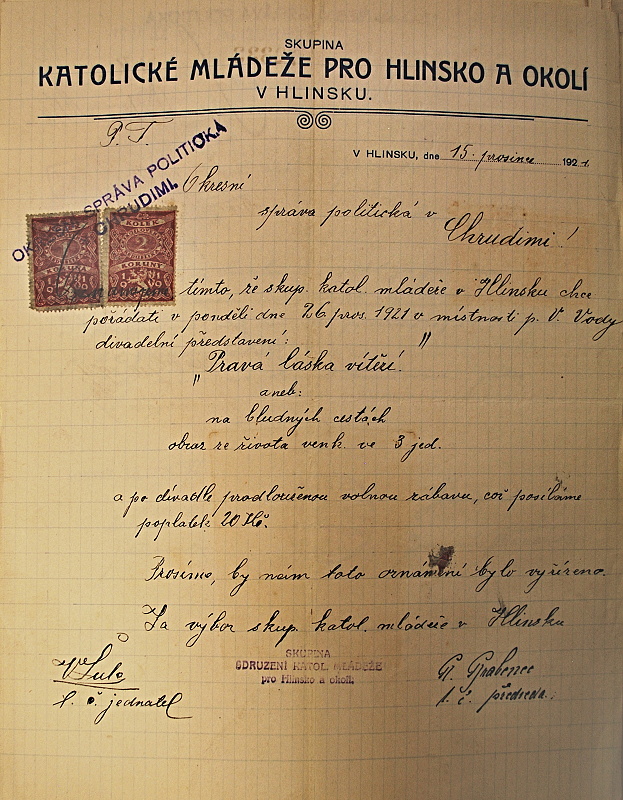 SKUPINA
KATOLICKÉ MLÁDEŽE PRO HLINSKO A OKOLÍ
V HLINSKU.
P. T.
V HLINSKU, dne 15. prosince 1921.
SPRÁVA POLITICKÁ
CHRUDIMI.
Okresní
správa politická v
Chrudimi!
KOLEK
2
KORUNY
tímto, že skup. katol. mládeže v Hlinsku chce
pořádati v pondělí dne 26 pros. 1921 v místnosti p. V. Vody
divadelní představení:
"Pravá láska vítězí."
aneb:
na bludných cestách
obraz ze života venk. ve 3 jed.
a po divadle prodlouženou volnou zábavu, což posíláme
poplatek 20 Kč.
Prosíme, by nám toto oznámení bylo vyřízeno.
Za výbor skup. katol. mládeže v Hlinsku
SKUPINA
SDRUZENÍ KATOL. MLÁDEŽE
pro Hlinsko a okolí.
t. č. jednatel
t. č. předseda.